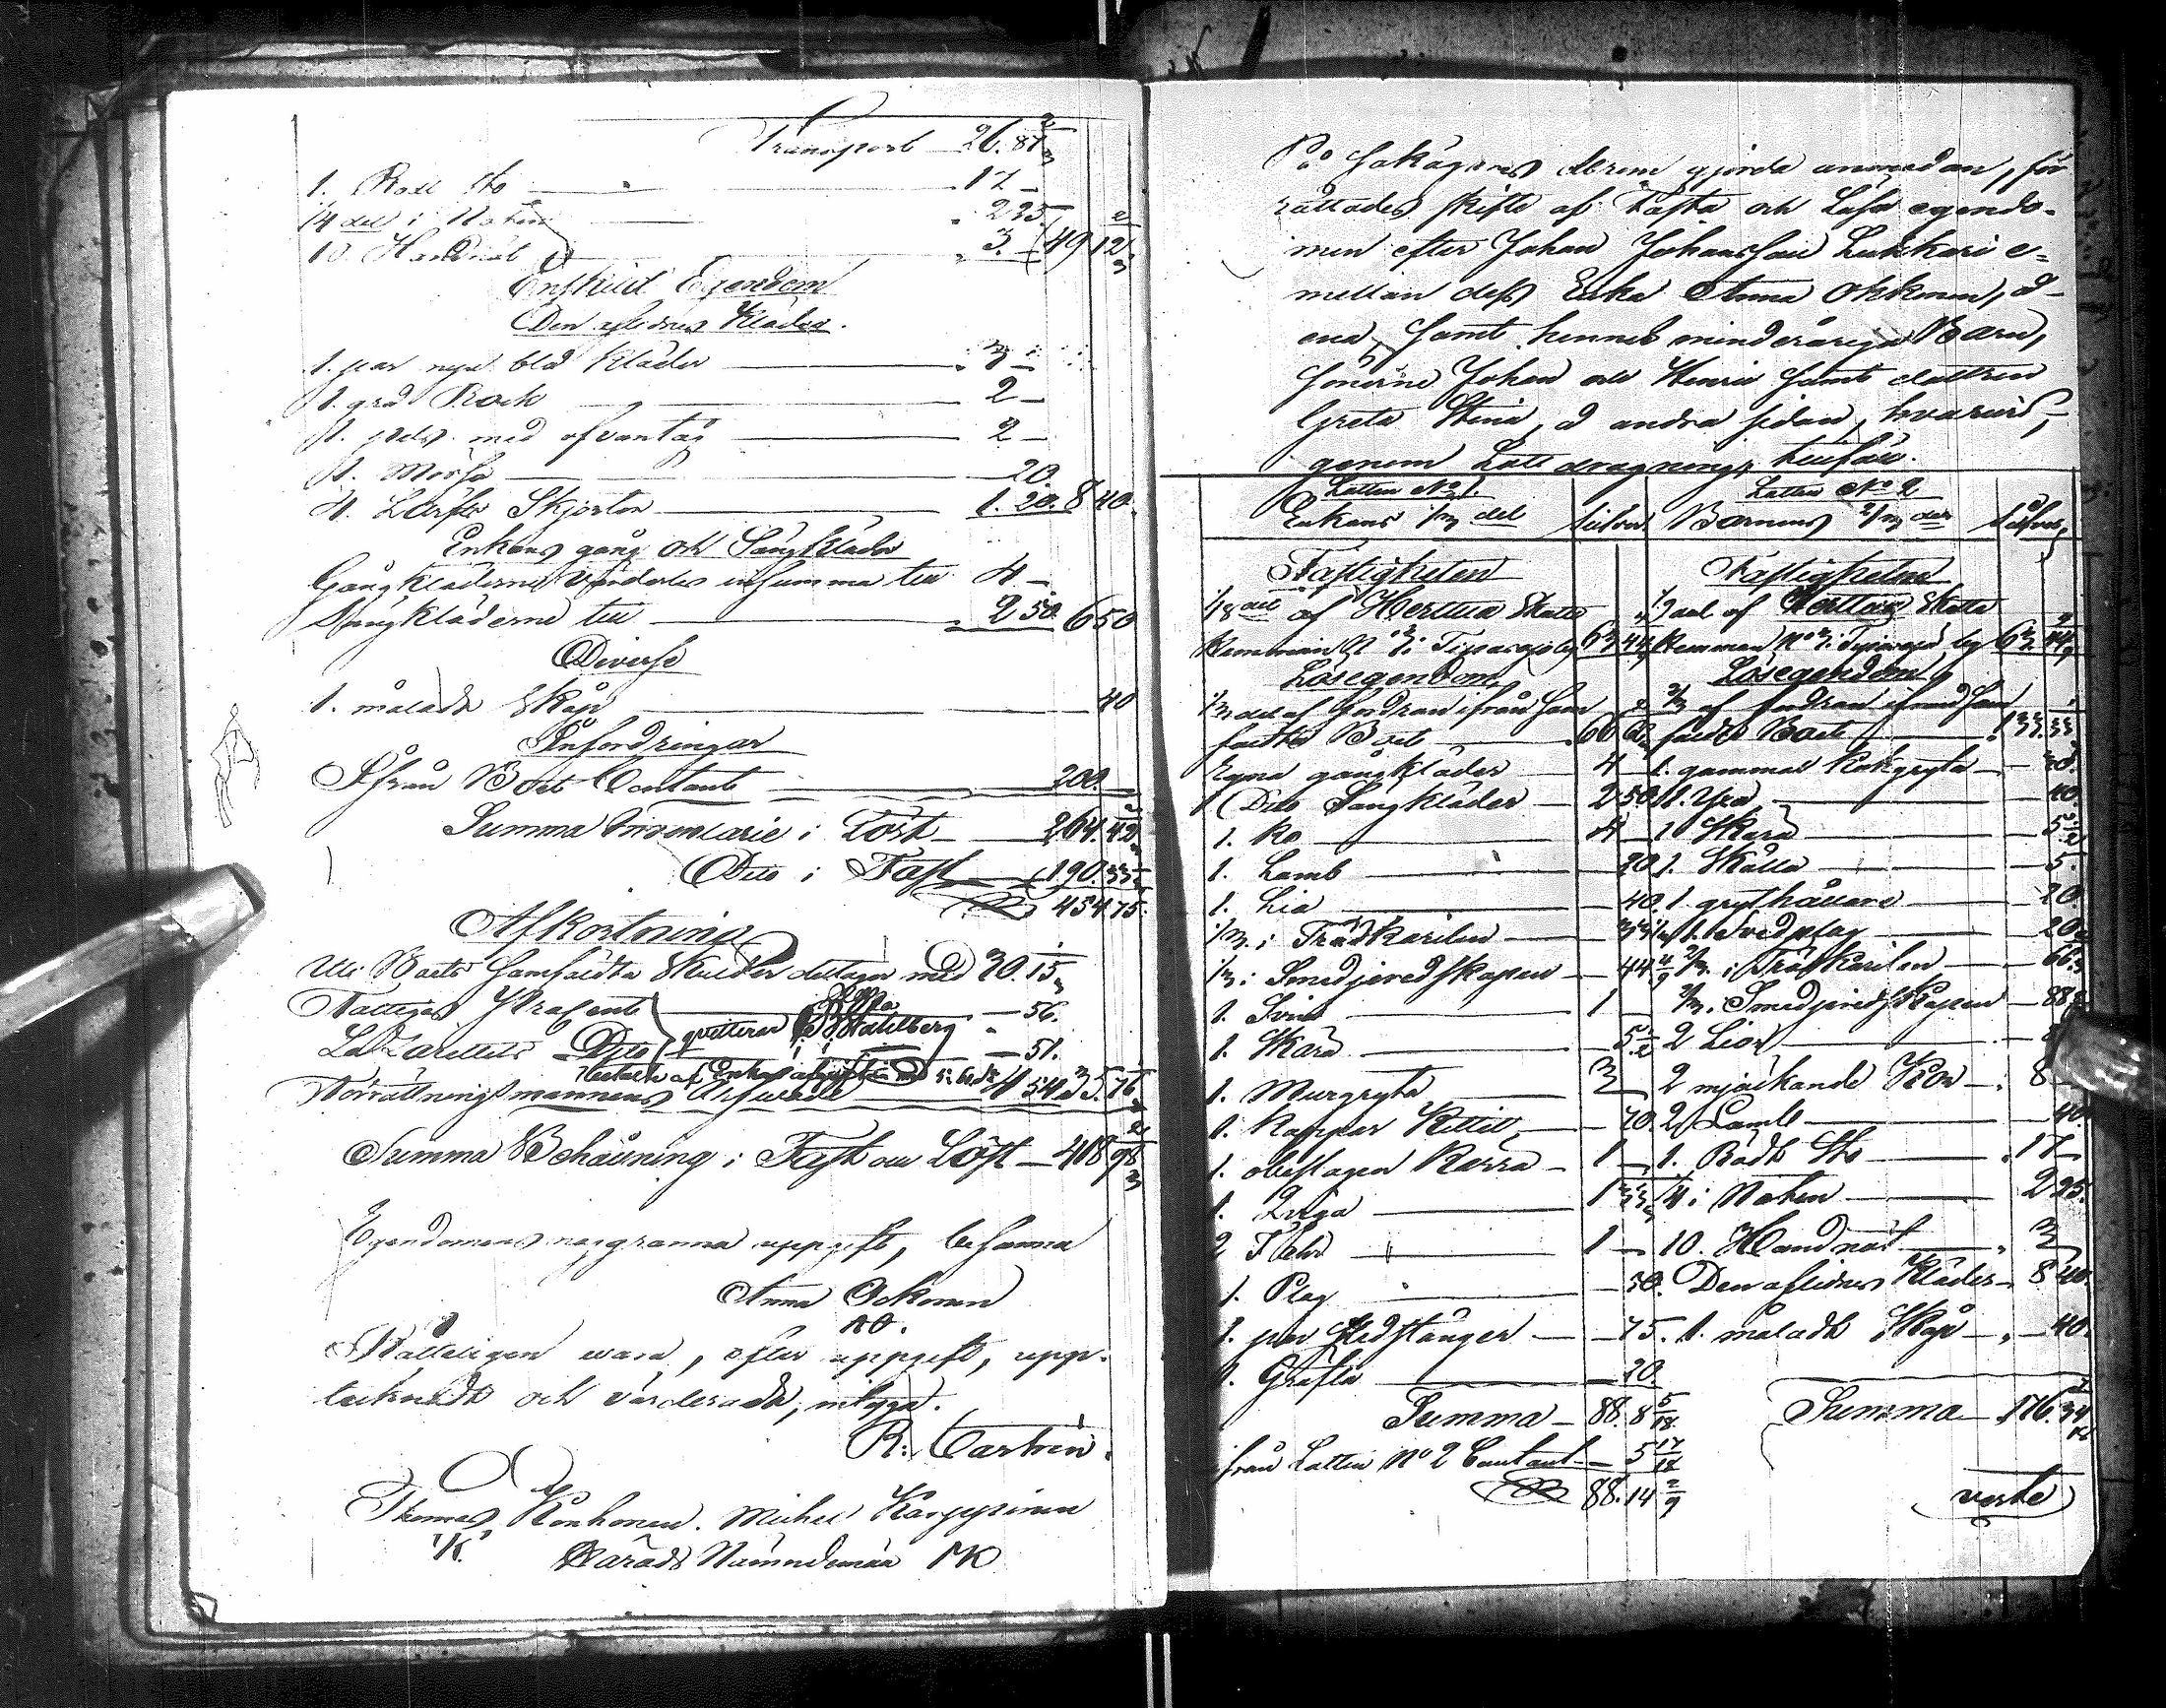 Transport 26.87 2/3
1. Rödt Sto 17 –
1/4 del i Noten 2 25.
10. Handnät 3. – 49 12 2/3
Enskild Egendom
Den aflidnes Kläder.
1. par nya blå Kläder 3 –
1. grå Rock 2 –
1. pels med ofvantåg 2 –
1. Mössa 20.
4. Lärfts Skjortor 1. 20. 8 40.
Enkans gång och Sängkläder
Gångkläderne värderades insumma till 4. –
Sängkläderne till 2 50. 6 50
Diverse
1. måladt Skåp 40
Infordringar
Ifrån Boet Contant 200. –
Summa Inventarie i Löst 264. 42
Dito i Fast 190. 33
454 75.
Afkortning
Uti Boets samfäldta Skulder deltager med 30. 15
Fattiges Procent 56.
Lazarettets Dito qvitterar Wahlberg 51.
Förrättningsmannens Arfvode 4 54 35. 76
Summa Behållning i Fast och Löst 418 98 2/3
Egendomens noggranna uppgift, besanna
Anna Ockonen
AO.
Rätteligen vara, efter uppgift, upp-
tecknadt och värderadt, intyga.
R. Castrén.
Thomas Konkonen. Michel Karppinen
TK. Härads Nämndeman MK
På Sakägarens derom gjorda anmodan, för-
rättades skifte af Fasta och Lösa egendo-
men efter Johan Johansson Lukkari e-
mellan dess Enka Anna Okkonen, å
ena, samt hennes minderåriga Barn,
Sönerne Johan och Henric samt dottren
Greta Stina, å andra sidan, hvarvid
genom Lottdragning, tillföll.
Lotten No 1. Lotten No 2
Enkans 1/3 del Silfver. Barnens 2/3 der Silfver
Fastigheten Fastigheten
1/18 del af Herttua Skatte 1/9 del af Herttua Skatte
Hemman No 3 i Tiparajo by 63 44 Hemman No 3 i Tiparajo by 63. 44
Lösegendom Lösegendom
1/3 del af fordran ifrån sam- 2/3 af fordran ifrån sam-
fäldta Boet 66 66 fäldta Boet 133 33
Egna gångkläder 4 – 1. gammal Kokgryta 30.
Dito Sängkläder 2 50 1. Yxa 40.
1. Ko 4 – 1 Skära 5 1/2
1. Lamb 20 1. Skålla 5.
1. Lia 40. 1 grythållare 20.
1/3 i Trädkärilen 33 1/3 1. Svedplog 20
1/3 i Smedjeredskapen 44 4/9 2/3 i Trädkärilen 66
1. Svin 1 – 2/3 Smedjeredskapen 88
1. Skära 5 1/2 2 Lior
1. Murgryta 3 – 2 mjölkande Kor 8
1. Koppar Kittil 70. 2 Lamb 40.
1. obeslagen Kärra 1 – 1. Rödt Sto 17
1. Qviga 1 33 1/3 1/4 i Noten 2 25.
2 Fähr 1 – 10. Handnät 3
1. Plog 50. Den aflidnes Kläder 8 40.
1. par Stedstänger 75. 1. måladt Skåp 40.
1. Gräfta 20.
Summa 88. 8 5/18 Summa 176. 34
från Lotten No 2 Contant 5 17/18
88. 14 2/9
verte